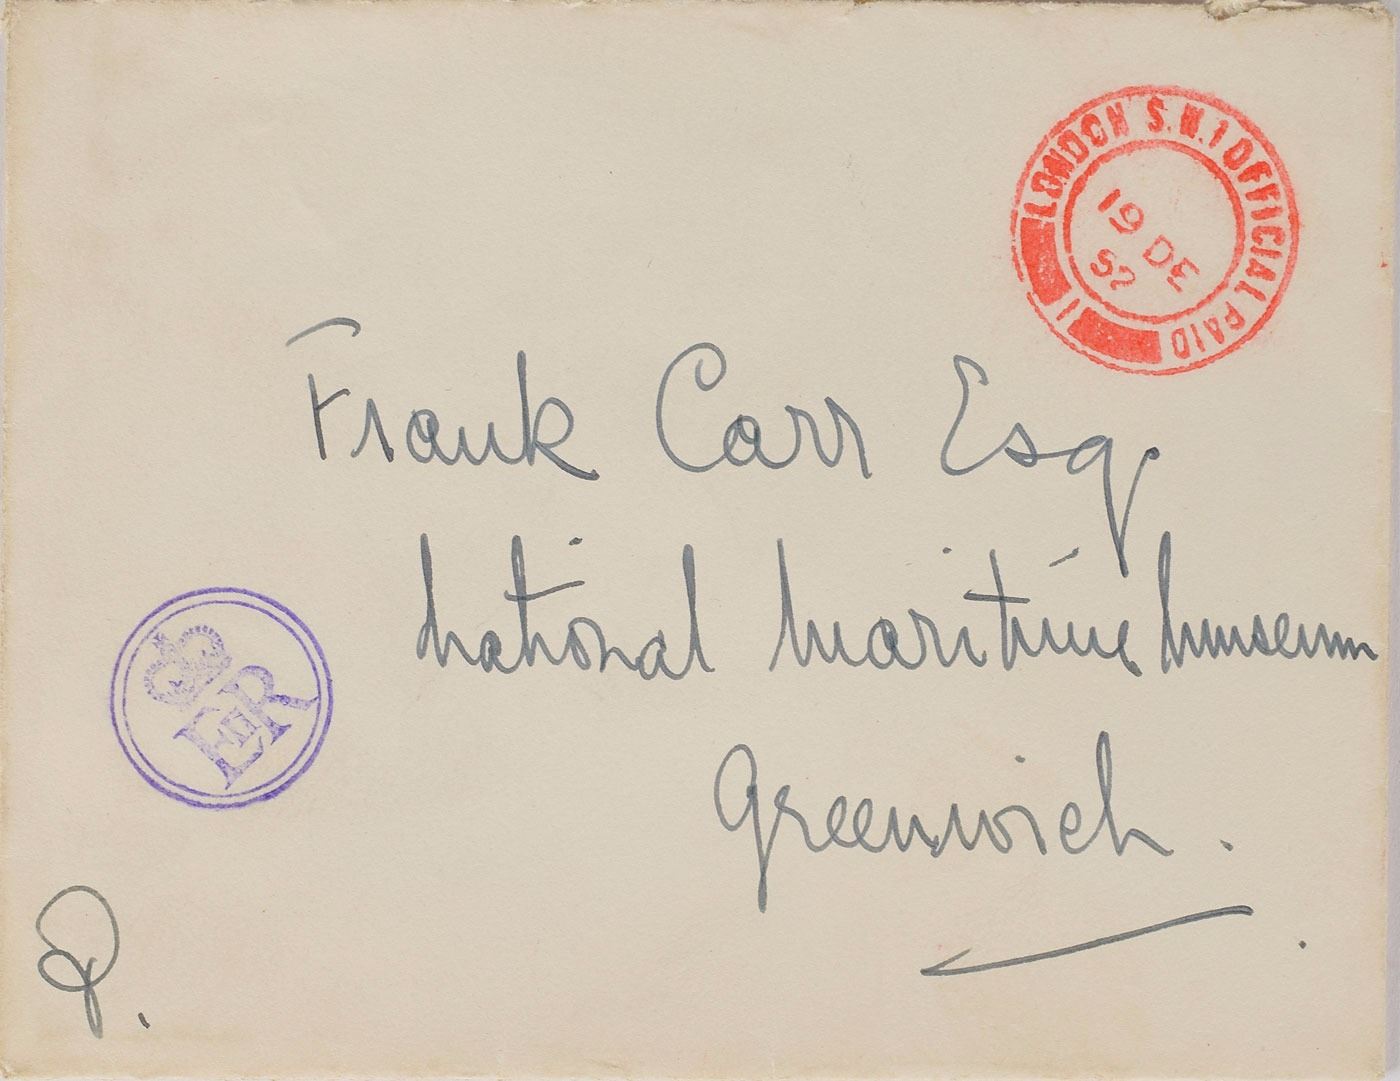 LONDON S.W.1 OFFICIAL PAID
19 DE
52
11
Frank Carr Esq
National Maritime Museum
Greenwich.
EIIR
P.